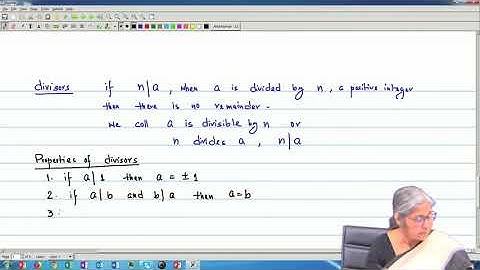 divisors if n|a, when a is divided by n, a positive integer
then there is no remainder.
We call a is divisible by n or
n divides a, n|a
Properties of divisors
1. if a|1 then a = ±1
2. if a|b and b|a then a=b
3: